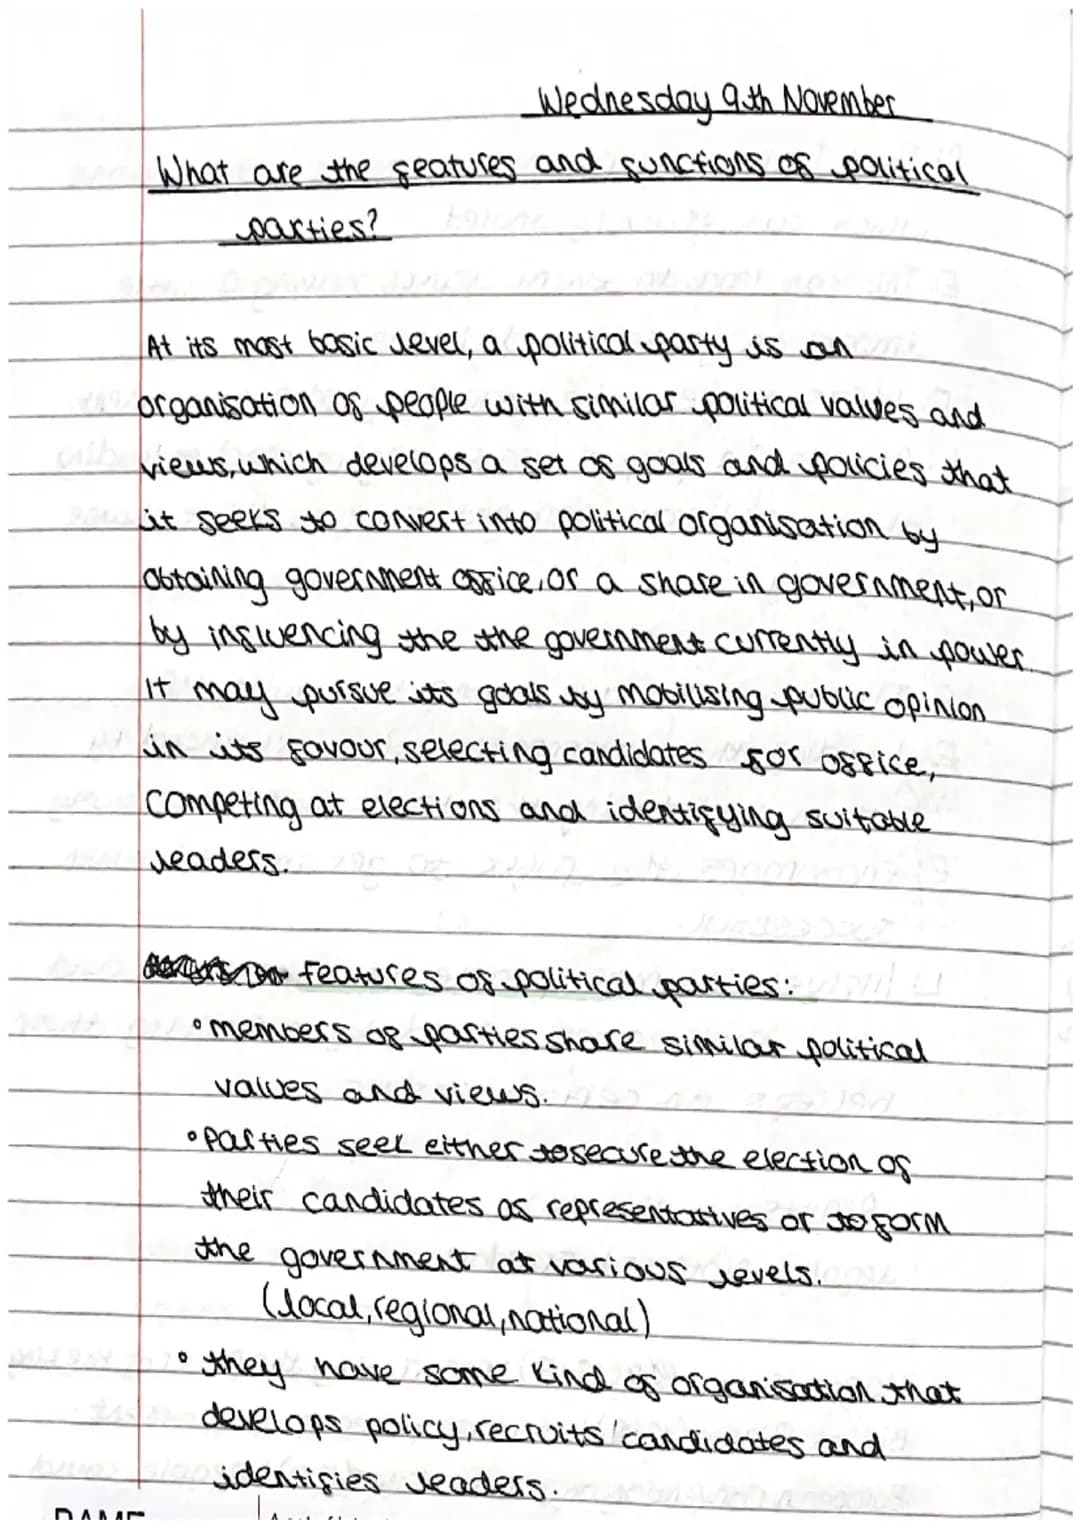 Wednesday 9th November
What are the features and functions of political
parties?
At its most basic level, a political party is an
organisation of people with similar political values and
views, which develops a set of goals and policies that
it seeks to convert into political organisation by
obtaining government office, or a share in government, or
by influencing the the government currently in power.
It may pursue its goals by mobilising public opinion
in its favour, selecting candidates for office,
competing at elections and identifying suitable
leaders.
features of political parties:
• members of parties share similar political
values and views.
• Parties seek either to secure the election of
their candidates as representatives or to form
the government at various levels.
(local, regional, national)
• they have some kind of organisation that
develops policy, recruits candidates and
identifies leaders.